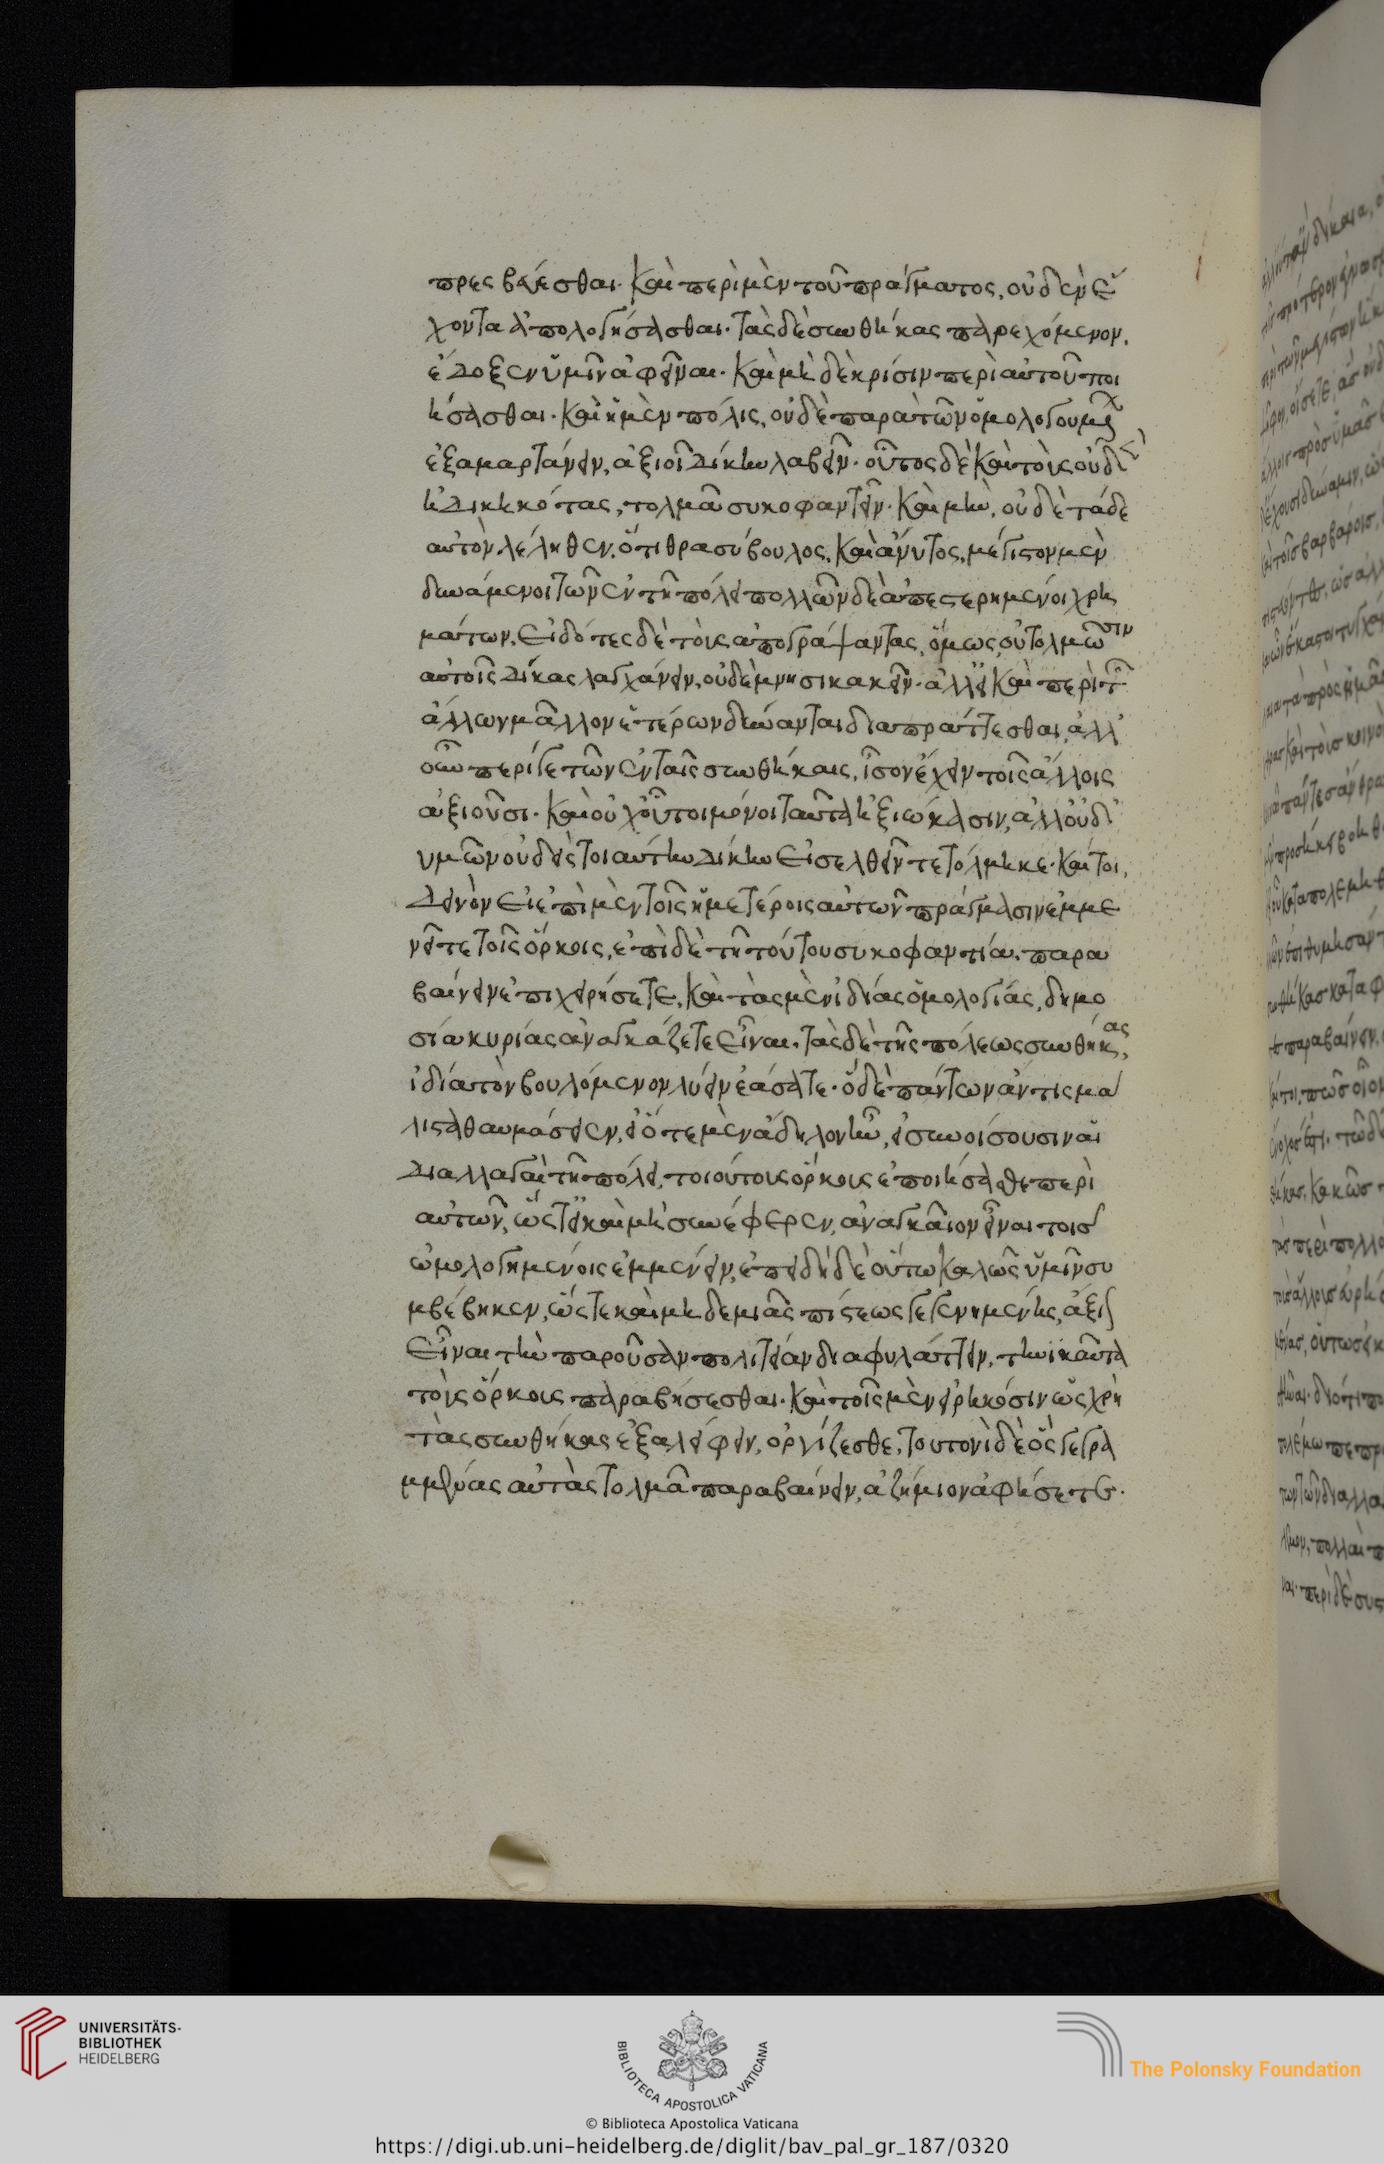 πρεσβεύεσθαι. Καὶ περὶ μὲν τοῦ πράγματος, οὐδὲν ἔ
χοντα ἀπολογήσασθαι. τὰς δὲ συνθήκας παρεχόμενον,
ἔδοξεν ὑμῖν ἀφεῖναι. Καὶ μηδὲ κρίσιν περὶ αὐτοῦ ποι
ήσασθαι. Καὶ ἡ μὲν πόλις, οὐδὲ παρὰ τῶν ὁμολογούντων
ἐξαμαρτάνειν, ἀξιοῖ δίκην λαβεῖν. οὗτος δὲ καὶ τοὺς οὐδὲν
ἠδικηκότας, τολμᾷ συκοφαντεῖν. Καὶ μὴν, οὐδὲ τάδε
αὐτὸν λέληθεν, ὅτι θρασύβουλος, Καὶ ἄνυτος, μέγιστον μὲν
δυνάμενοι τῶν ἐν τῇ πόλει πολλῶν δὲ ἀπεστερημένοι χρη
μάτων, εἰδότες δὲ τοὺς ἀπογράψαντας, ὅμως οὐ τολμῶσιν
αὐτοῖς δίκας λαγχάνειν, οὐδὲ μνησικακεῖν. ἀλλ' εἰ Καὶ περὶ τῶν
ἄλλων μᾶλλον ἑτέρων δύνανται διαπράττεσθαι, ἀλλ'
οὖν περί γε τῶν ἐν ταῖς συνθήκαις, ἴσον ἔχειν τοῖς ἄλλοις
ἀξιοῦσι. Καὶ οὐχ οὗτοι μόνοι ταῦτα ἠξιώκασιν, ἀλλ' οὐδ'
ὑμῶν οὐδεὶς τοιαύτην δίκην εἰσελθεῖν τετόλμηκε. Καίτοι,
δεινὸν εἰ ἐπὶ μὲν τοῖς ἡμετέροις αὐτῶν πράγμασιν ἐμμέ
νετε τοῖς ὅρκοις, ἐπὶ δὲ τῇ τούτου συκοφαντίᾳ, παρα
βαίνειν ἐπιχειρήσετε, Καὶ τὰς μὲν ἰδίας ὁμολογίας, δημο
σίᾳ κυρίας ἀναγκάζετε εἶναι. τὰς δὲ τῆς πόλεως συνθήκας,
ἰδίᾳ τὸν βουλόμενον λύειν ἐάσατε. ὃ δὲ πάντων ἄν τις μά
λιστα θαυμάσειεν, εἰ ὅτε μὲν ἄδηλον ἦν, εἰ συνοίσουσιν αἱ
διαλλαγαὶ τῇ πόλει, τοιούτους ὅρκους ἐποιήσασθε περὶ
αὐτῶν, ὥστ' εἰ καὶ μὴ συνέφερεν, ἀναγκαῖον εἶναι τοῖς
ὡμολογημένοις ἐμμένειν, ἐπειδὴ δὲ οὕτω καλῶς ὑμῖν συ
μβέβηκεν, ὥστε καὶ μηδεμιᾶς πίστεως γεγενημένης, ἄξιον
εἶναι τὴν παροῦσαν πολιτείαν διαφυλάττειν, τηνικαῦτα
τοὺς ὅρκους παραβήσεσθαι. Καὶ τοῖς μὲν εἰρηκόσιν ὡς χρὴ
τὰς συνθήκας ἐξαλείφειν, ὀργίζεσθε, τουτονὶ δὲ ὃς γεγρα
μμένας αὐτὰς τολμᾷ παραβαίνειν, ἀζήμιον ἀφήσετε.
UNIVERSITÄTS-
BIBLIOTHEK
HEIDELBERG
BIBLIOTECA APOSTOLICA VATICANA
The Polonsky Foundation
© Biblioteca Apostolica Vaticana
https://digi.ub.uni-heidelberg.de/diglit/bav_pal_gr_187/0320